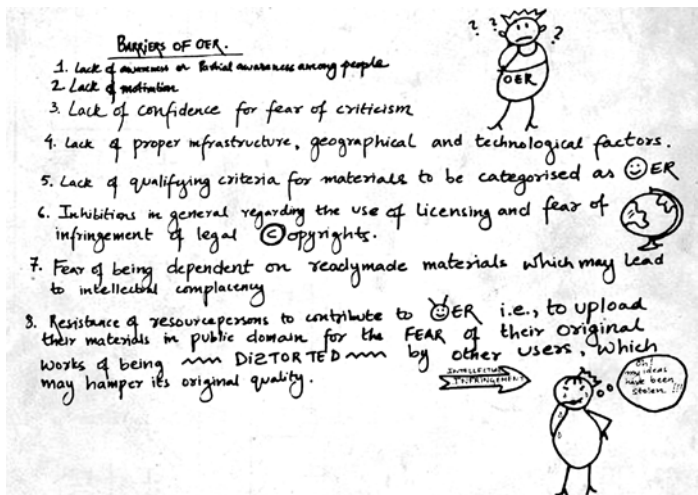 BARRIERS OF OER.
? ? ? ?
OER
1. Lack of awareness or Partial awareness among people
2. Lack of motivation
3. Lack of confidence for fear of criticism
4. Lack of proper infrastructure, geographical and technological factors.
5. Lack of qualifying criteria for materials to be categorised as OER
6. Inhibitions in general regarding the use of licensing and fear of
infringement of legal ©opyrights.
7. Fear of being dependent on readymade materials which may lead
to intellectual complacency
8. Resistance of resourcepersons to contribute to OER i.e., to upload
their materials in public domain for the FEAR of their original
works of being ~~~ DISTORTED ~~~ by other users, which
may hamper its original quality.
INTELLECTUAL
INFRINGEMENT
Oh!
my ideas
have been
stolen !!!